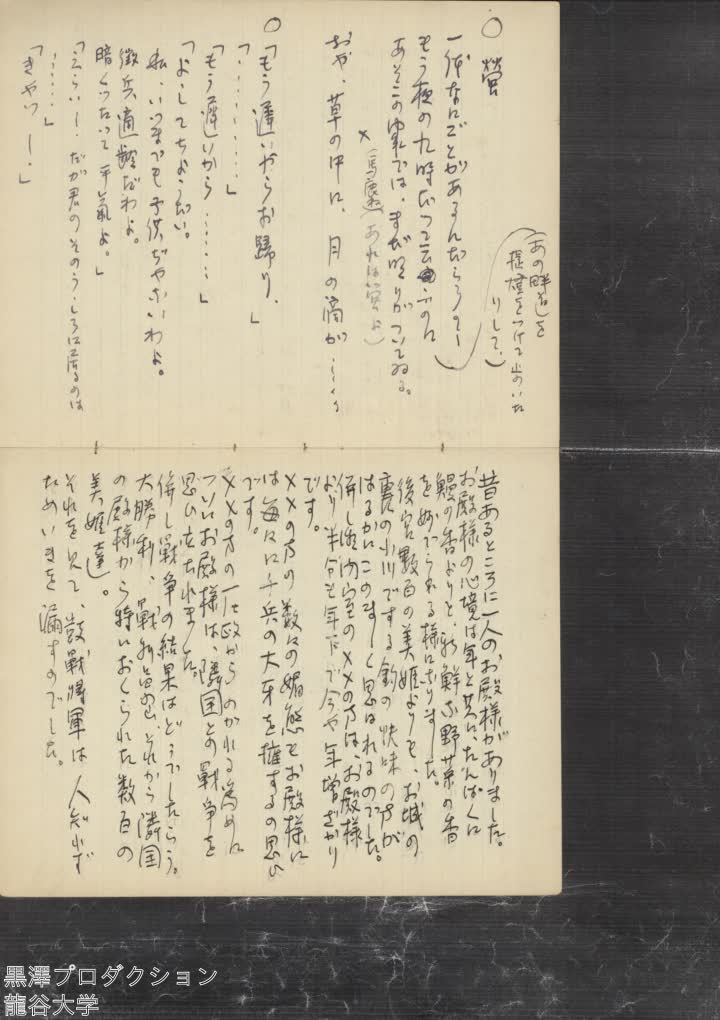 ○ 螢
一体なにごとがあるんだらうのー
もう夜の九時だつて云ふのに
あそこの家では、まだ明りがついてゐる。
(あの畔道を
提燈をつけて
りして、)
×
(馬鹿ね あれは螢よ)
おや、草の中に、月の滴が……
○
「もう遅いからお歸り、」
「・・・・・・・・」
「もう遅いから……」
「よしてちようだい。
私、いつまでも子供ぢやないわよ。
徴兵適齢だわよ。
暗くつたつて平氣よ。」
「えらいー。だが君のそのうしろに居るのは
……」
「きやつー。」
昔あるところに一人のお殿様がありました。
お殿様の心境は年と共に、たんぱくに
鰻の香よりも、新鮮な野菜の香
を好まれる様になりました。
後宮数百の美姫よりも、お城の
裏の小川でする釣の快味の方が
はるかにこのましく思はれるのでした。
併し 室の××の方は、お殿様
より半分も年下で今や年増ざかり
です。
××の方の数々の媚態もお殿様に
は毎々に千兵の大牙を擁するの思ひ
です。
××の方の からのがれる為めに
ついにお殿様は、隣国との戰争を
思ひ立たれました。
併し戰争の結果はどうでしたらう。
大勝利、戰 、それから隣国
の殿様から特におくられた数百の
美姫達。
それを見て、敗戰將軍は人知れず
ためいきを漏すのでした。
黒澤プロダクション
龍谷大学